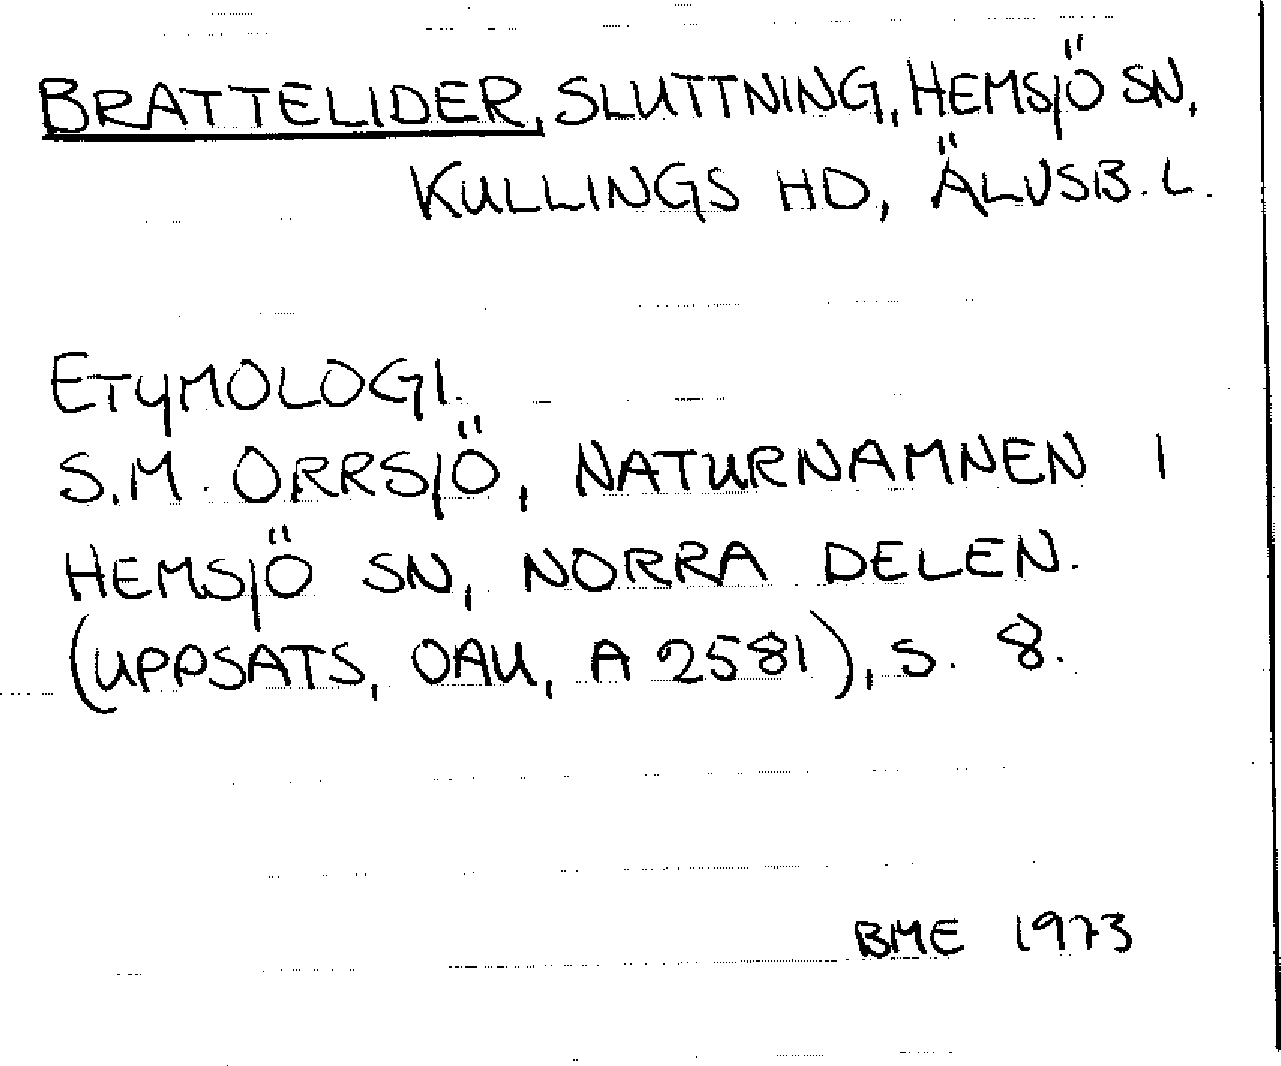 BRATTELIDER, SLUTTNING, HEMSJÖ SN,
KULLINGS HD, ÄLVSB. L.
ETYMOLOGI.
S.M. ORRSJÖ, NATURNAMNEN I
HEMSJÖ SN, NORRA DELEN.
(UPPSATS, OAU, A 2581), S. 8.
BME 1973